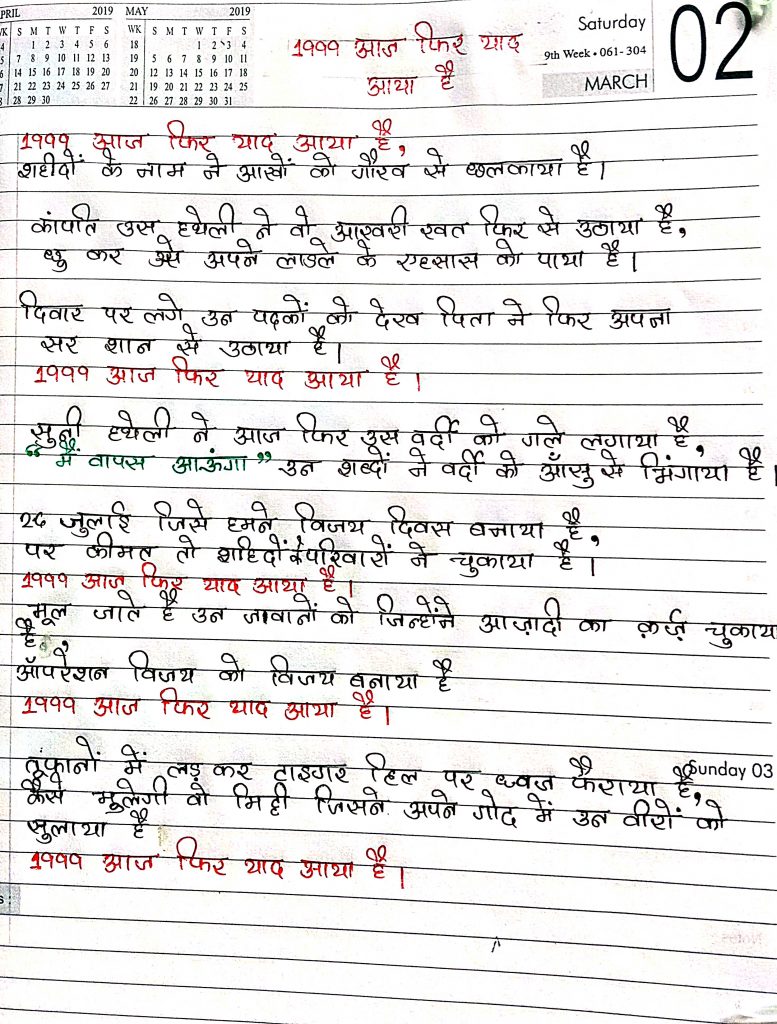 APRIL 2019 MAY 2019
WK S M T W T F S WK S M T W T F S
14 1 2 3 4 5 6 18 1 2 3 4
15 7 8 9 10 11 12 13 19 5 6 7 8 9 10 11
16 14 15 16 17 18 19 20 20 12 13 14 15 16 17 18
17 21 22 23 24 25 26 27 21 19 20 21 22 23 24 25
18 28 29 30 22 26 27 28 29 30 31
Saturday
9th Week • 061-304
MARCH
02
१९९९ आज फिर याद
आया है
१९९९ आज फिर याद आया है,
शहीदों के नाम ने आखों को गौरव से छलकाया है।
कांपति उस हथेली ने वो आखरी खत फिर से उठाया है,
छु कर उसे अपने लाडले के एहसास को पाया है।
दिवार पर लगे उन पदकों को देख पिता ने फिर अपना
सर शान से उठाया है।
१९९९ आज फिर याद आया है।
सुनी हथेली ने आज फिर उस वर्दी को गले लगाया है,
“मैं वापस आऊंगा” उन शब्दों ने वर्दी को आँसु से भिंगाया है।
२६ जुलाई जिसे हमने विजय दिवस बनाया है,
पर कीमत तो शहिदों के परिवारों ने चुकाया है।
१९९९ आज फिर याद आया है।
भूल जाते है उन जवानों को जिन्होंने आज़ादी का क़र्ज़ चुकाया
है,
ऑपरेशन विजय को विजय बनाया है
१९९९ आज फिर याद आया है।
Sunday 03
तूफानों में लड़ कर टाइगर हिल पर ध्वज फैराया है,
कैसे भूलेगी वो मिट्टी जिसने अपने गोद में उन वीरों को
सुलाया है
१९९९ आज फिर याद आया है।